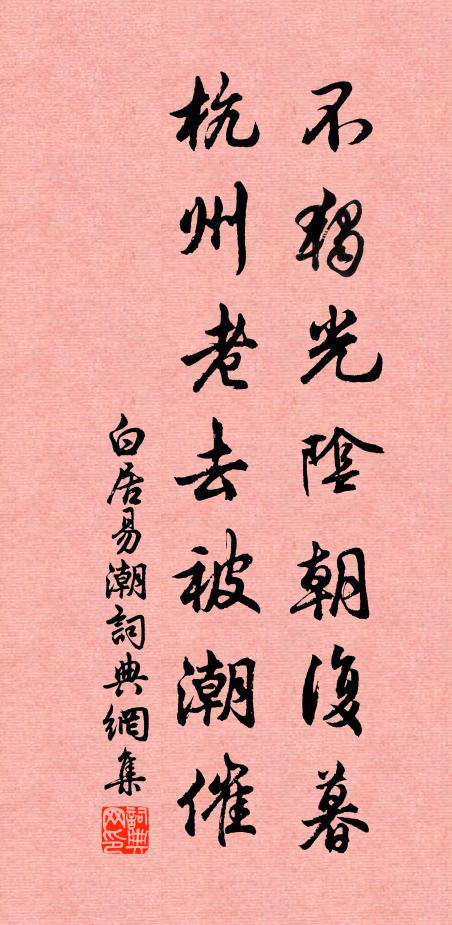 不獨光陰朝復暮
杭州老去被潮催
白居易潮詞典網集
詞典網印